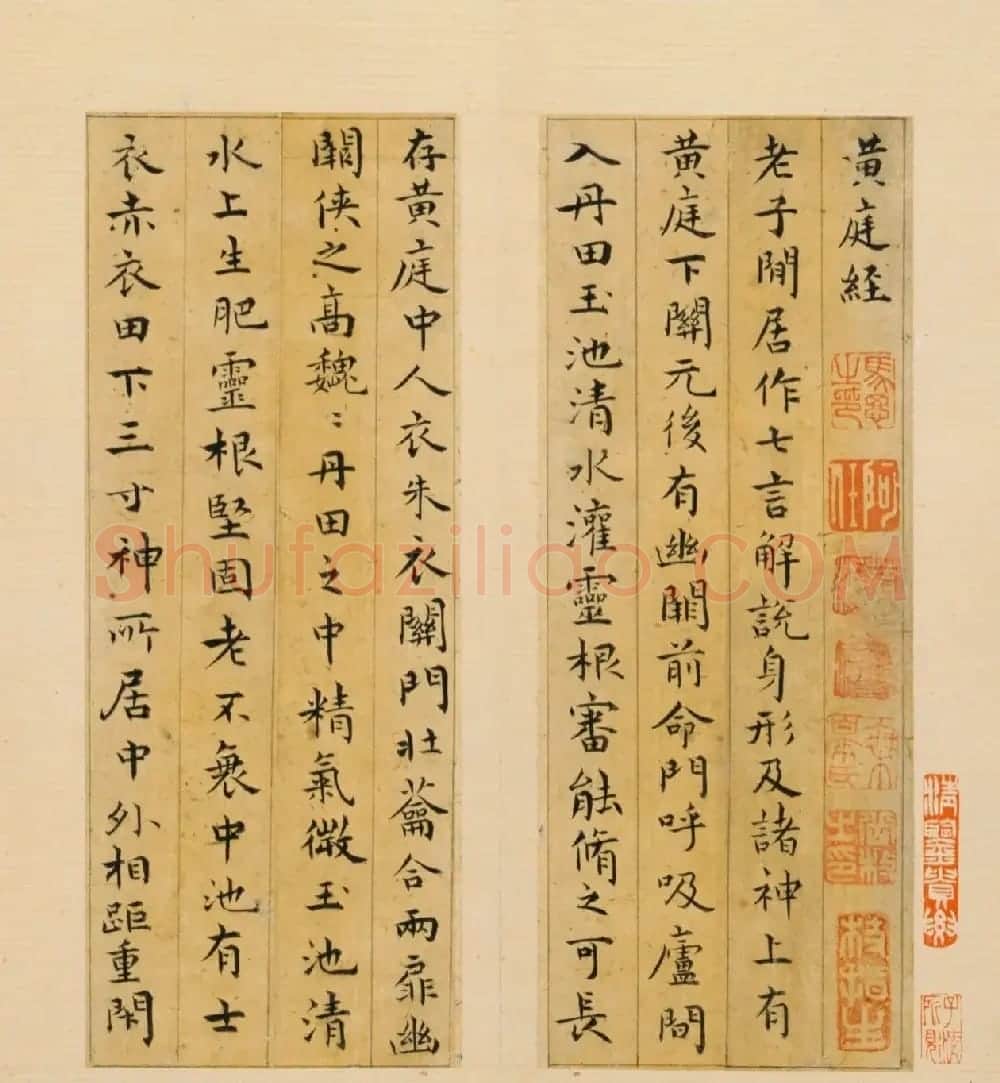 黃庭經
老子閒居作七言解說身形及諸神上有
黃庭下關元後有幽闕前命門呼吸廬間
入丹田玉池清水灌靈根審能脩之可長
存黃庭中人衣朱衣關門壯蘥合兩扉幽
闕俠之高魏〻丹田之中精氣微玉池清
水上生肥靈根堅固老不衰中池有士
衣赤衣田下三寸神所居中外相距重閇
Shufaziliao.COM